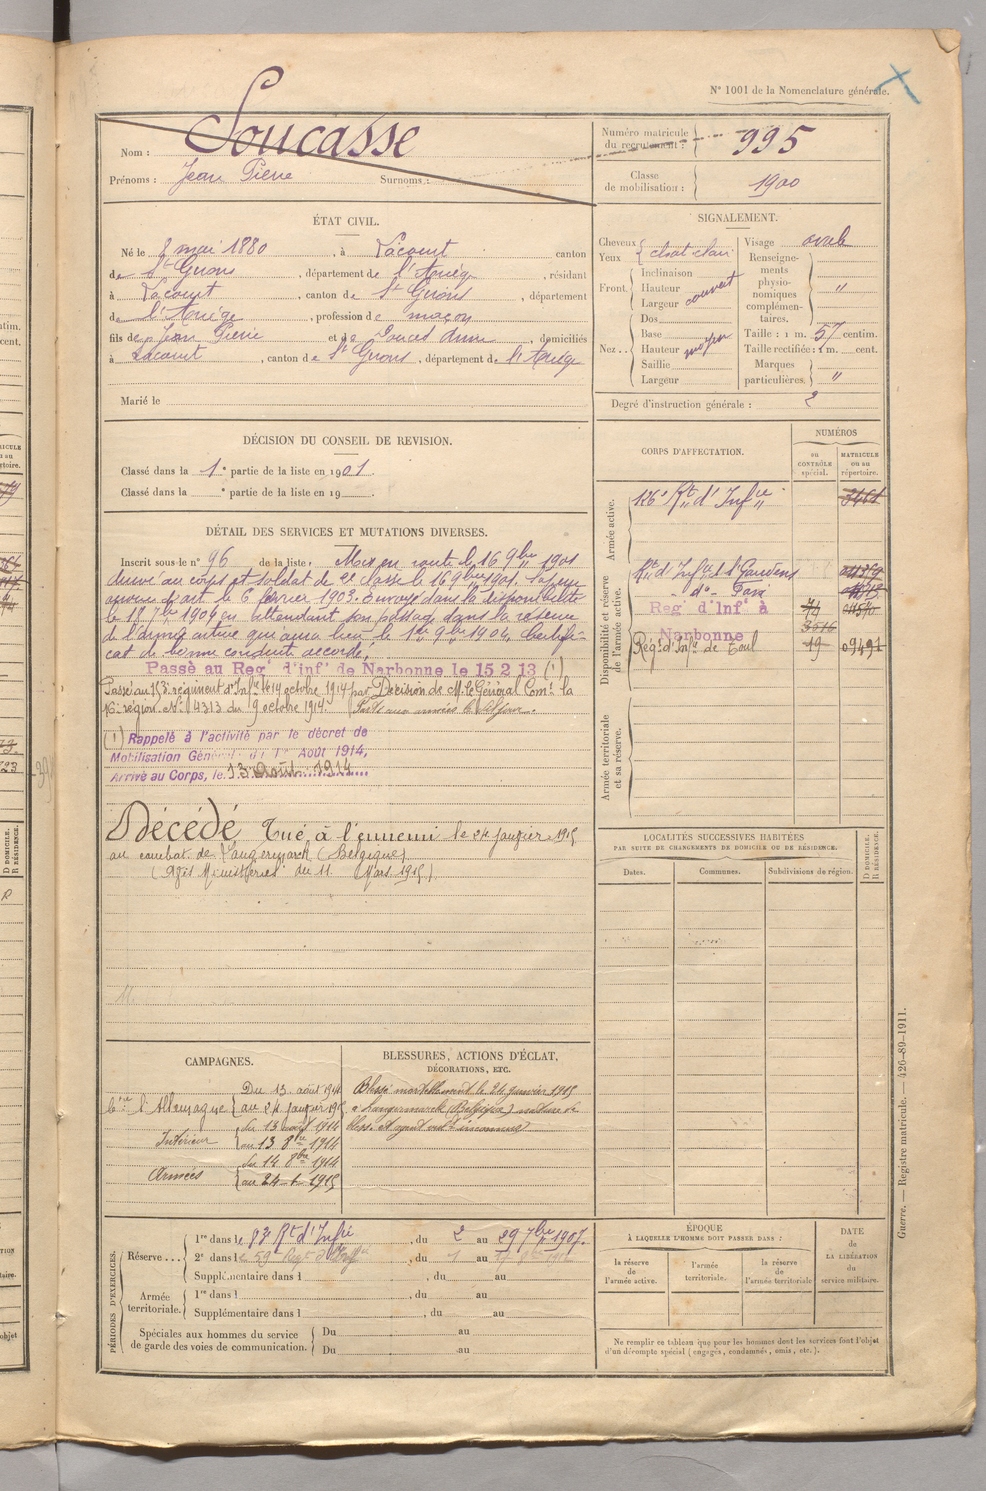 N° 1001 de la Nomenclature générale.
Nom : Soucasse
Prénoms : Jean Pierre Surnoms :
Numéro matricule du recrutement : 995
Classe de mobilisation : 1900
ÉTAT CIVIL.
Né le 8 mai 1880, à Lacourt canton
de St Girons, département de l'Ariège, résidant
à Lacourt, canton de St Girons, département
de l'Ariège, profession de maçon
fils de Jean Pierre et de domiciliés
à Lacourt, canton de St Girons, département de l'Ariège
Marié le
SIGNALEMENT.
Cheveux
Yeux chat clair
Front. Inclinaison
Hauteur couvert
Largeur
Nez.. Dos
Base
Hauteur moyen
Saillie
Largeur
Visage ovale
Renseignements physionomiques complémentaires. "
Taille : 1 m. 57 centim.
Taille rectifiée : 1 m. cent.
Marques particulières. "
Degré d'instruction générale : 2
DÉCISION DU CONSEIL DE REVISION.
Classé dans la 1e partie de la liste en 1901
Classé dans la e partie de la liste en 19
DÉTAIL DES SERVICES ET MUTATIONS DIVERSES.
Inscrit sous le n° 96 de la liste. Mis en route le 16 9bre 1901
arrivé au corps et soldat de 2e classe le 16 9bre 1901.
le 6 février 1903. Envoyé dans la disponibilité
le 18 7bre 1904 en attendant son passage dans la réserve
de l'armée active qui aura lieu le 1er 9bre 1904, Certifi-
cat de bonne conduite accordé,
Passé au Reg' d'inf' de Narbonne le 15 2 13 (1)
Passé au 153e régiment d'Infie le 14 octobre 1914 par Décision de M. le Général Comt la
16e région. N° 4313 du 9 octobre 1914.
(1) Rappelé à l'activité par le décret de
Mobilisation Générale du 1er Août 1914,
Arrivé au Corps, le 13 Août 1914
Décédé Tué à l'ennemi le 24 janvier 1915
au combat de Langermarck (Belgique)
(Avis Ministériel du 11 Mars 1915)
CORPS D'AFFECTATION.
NUMÉROS
au CONTRÔLE spécial.
MATRICULE ou au répertoire.
Armée active.
126e Rt d'Infie 3461
Disponibilité et réserve de l'armée active.
Rt d'Infie de St Gaudens
- do - Foix
Reg' d'Inf' à Narbonne
Régt d'Infie de Toul 19 09491
Armée territoriale et sa réserve.
LOCALITÉS SUCCESSIVES HABITÉES
PAR SUITE DE CHANGEMENTS DE DOMICILE OU DE RÉSIDENCE.
Dates. Communes. Subdivisions de région. D DOMICILE. R RÉSIDENCE.
CAMPAGNES.
Du 13 août 1914
Cre l'Allemagne au 24 janvier 1915
Intérieur du 13 août 1914
au 13 8bre 1914
Armées du 14 8bre 1914
au 24-1-1915
BLESSURES, ACTIONS D'ÉCLAT,
DÉCORATIONS, ETC.
Blessé mortellement le 24 janvier 1915
à Langermarck (Belgique) nature de
bless. et agent vul. inconnus
PÉRIODES D'EXERCICES.
Réserve... 1re dans le 83e Rt d'Infie, du 2 au 29 7bre 1907.
2e dans le 59e Regt d'Inf, du 1 au
Supplémentaire dans l, du au
Armée territoriale. 1re dans l, du au
Supplémentaire dans l, du au
Spéciales aux hommes du service de garde des voies de communication. Du au
Du au
ÉPOQUE
À LAQUELLE L'HOMME DOIT PASSER DANS :
la réserve de l'armée active. l'armée territoriale. la réserve de l'armée territoriale
DATE DE LA LIBÉRATION du service militaire.
Ne remplir ce tableau que pour les hommes dont les services font l'objet
d'un décompte spécial (engagés, condamnés, omis, etc.).
Guerre. — Registre matricule. — 426-89-1911.